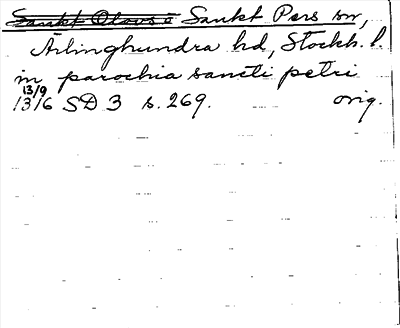 Sankt Olovs s Sankt Pers sn,
Ärlinghundra hd, Stockh. l.
in parochia sancti petri
13/9
1376 SD 3 s. 269. orig.